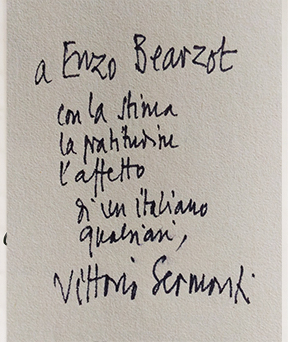 a Enzo Bearzot
con la stima
la gratitudine
l'affetto
di un italiano
qualsiasi,
Vittorio Sermonti